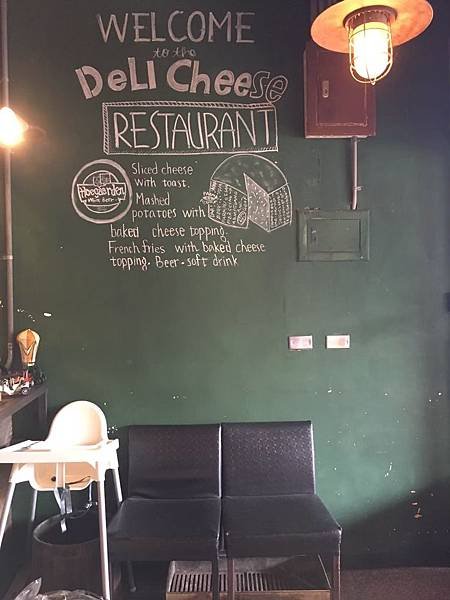 WELCOME
to the
DeLI Cheese
RESTAURANT
Hoegaarden
Sliced cheese
with toast.
Mashed
potatoes with
baked cheese topping.
French fries with baked cheese
topping. Beer - soft drink